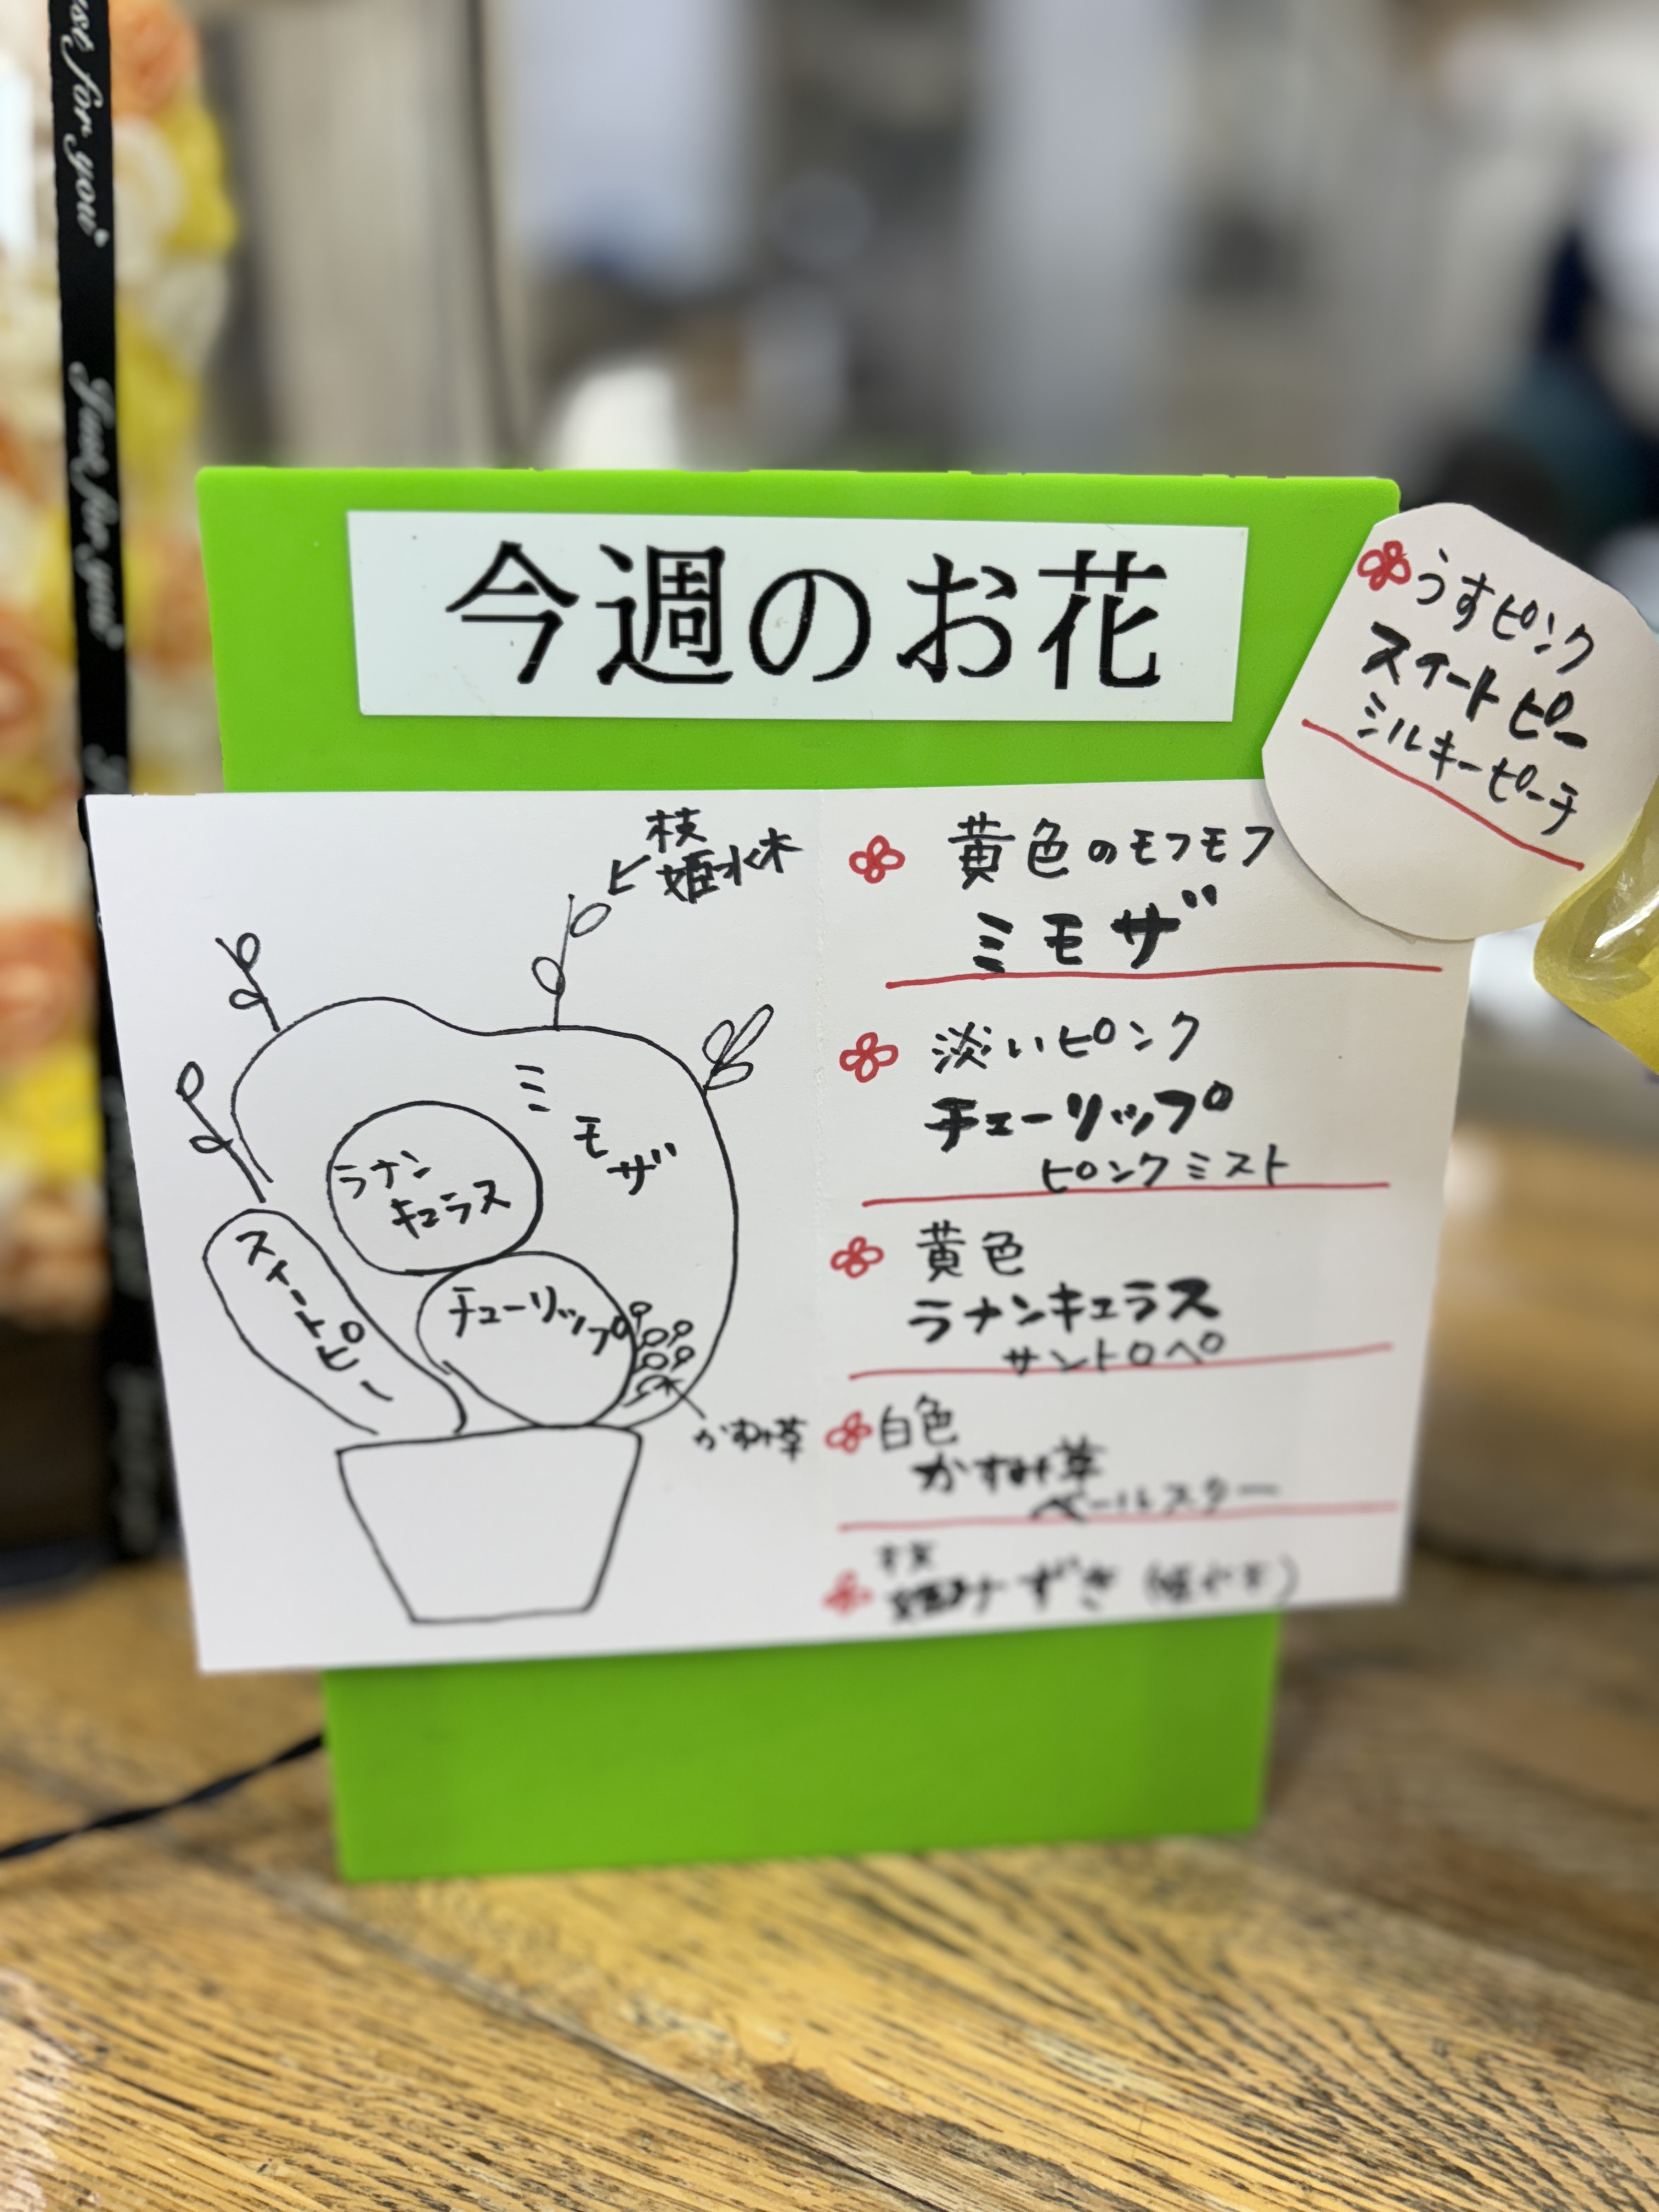 Just for you
Just for you
今週のお花
うすピンク
スイートピー
ミルキーピーチ
枝
姫水木
ミモザ
ラナン
キュラス
スイートピー
チューリップ
かすみ草
黄色のモフモフ
ミモザ
淡いピンク
チューリップ
ピンクミスト
黄色
ラナンキュラス
サントロペ
白色
かすみ草
ベールスター
枝
姫みずき(姫水木)